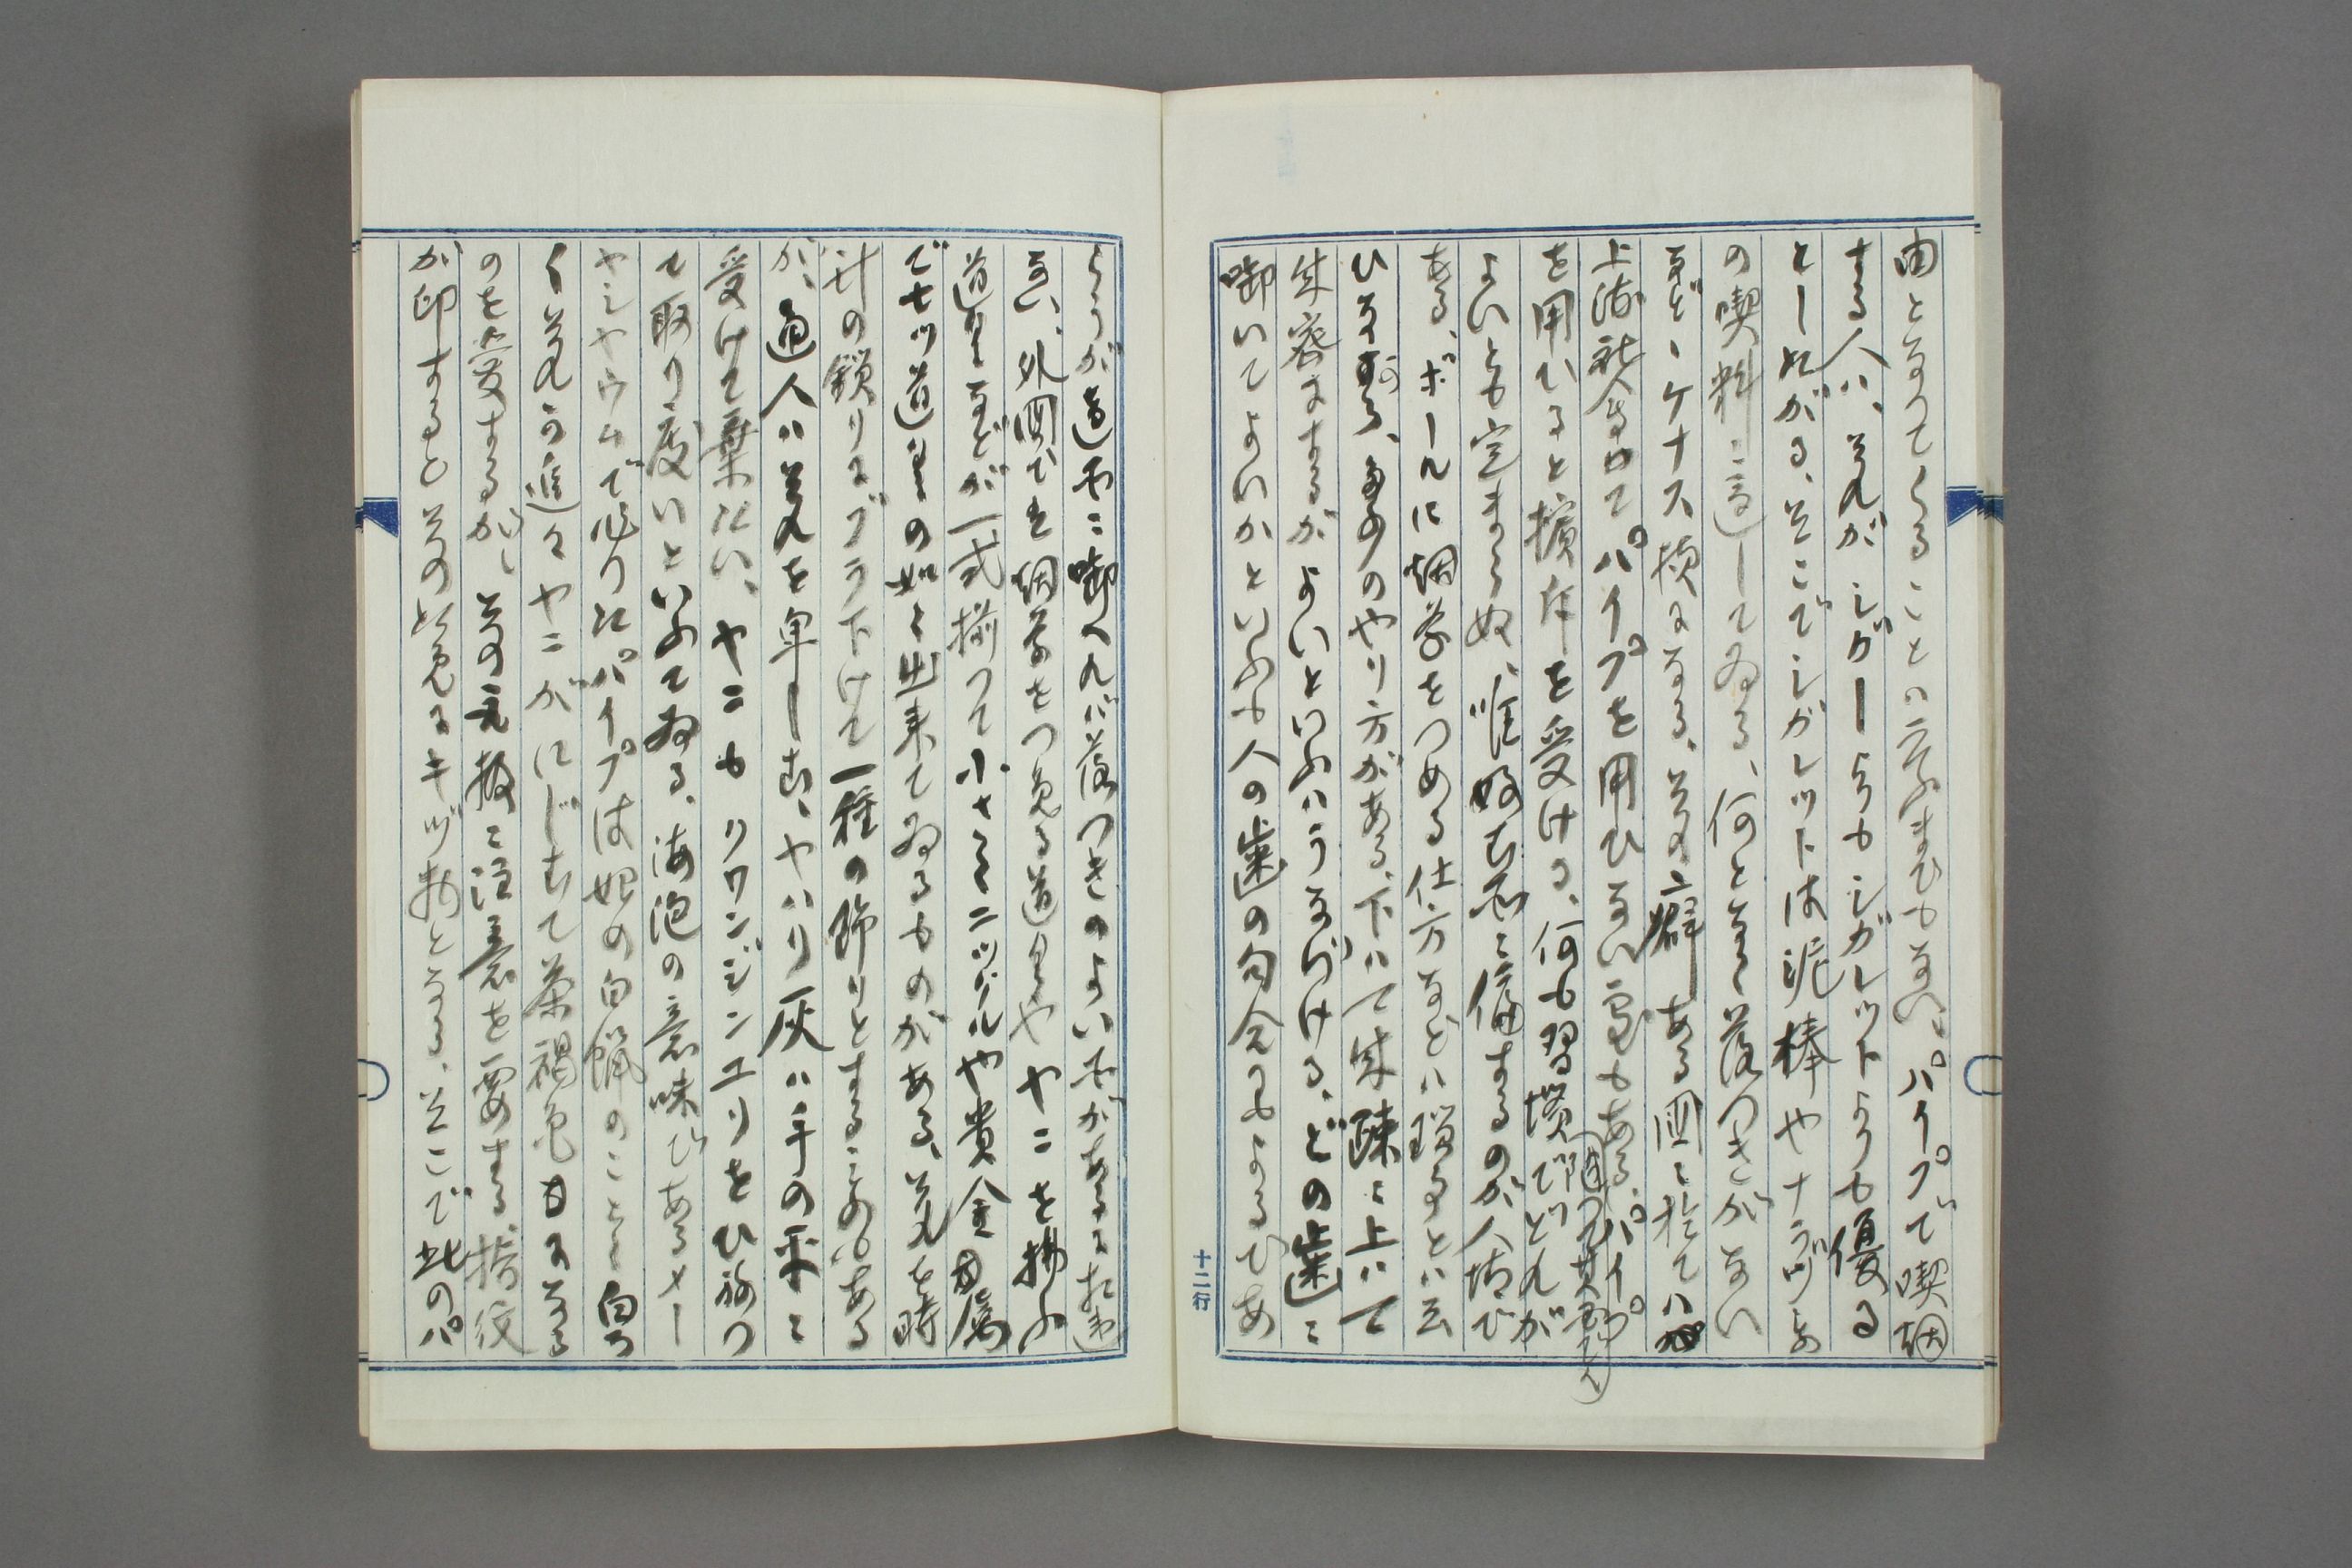 由となつてくることハ云ふまでもない、パイプで喫烟
する人ハ、それがシガーよりもシガレットよりも優る
としたがる、そこでシガレットは泥棒やナラヅもの
の喫料に適してゐる、何となく落つきがない
などゝケナス様になる、その癖ある国に於てハ
上流社会ではパイプを用ひない処もある、パイプ
を用ひると擯斥を受ける、何も習慣でどれが
よいとも定まらぬ、唯好む処に偏するのが人情で
ある、ボールに烟草をつめる仕方などハ瑣事とハ云
ひながら、多少のやり方がある、下ハて疎に上ハて
密にするがよいといふハうなづける、どの歯に
啣いてよいかといふも人の歯の句合にもよるであ
らうが適所に啣へれバ落つきのよい所があるに相違
ない、外国でも烟草をつめる道具や ヤニを拂ふ
道具などが一式揃つて小さくニッケルや貴金属
でセツ道具の如く出来てゐるものがある、それを時
計の鎖りにブラ下げて一種の飾りとするものもある
が、通人ハそれを卑しむ、やハり灰ハ手の平に
受けて棄たい、ヤニもクワンジンユリをひねつ
て取り度いといふてゐる、海泡の意味であるメー
ヤシヤウムで作つたパイプは始の白蝋のことく白つ
くそれが追々ヤニがにじむで茶褐色になる
のを愛するが、その取扱に注意を要する、指紋
が印するとその処色にキヅ物となる、そこで此のパ
十二行